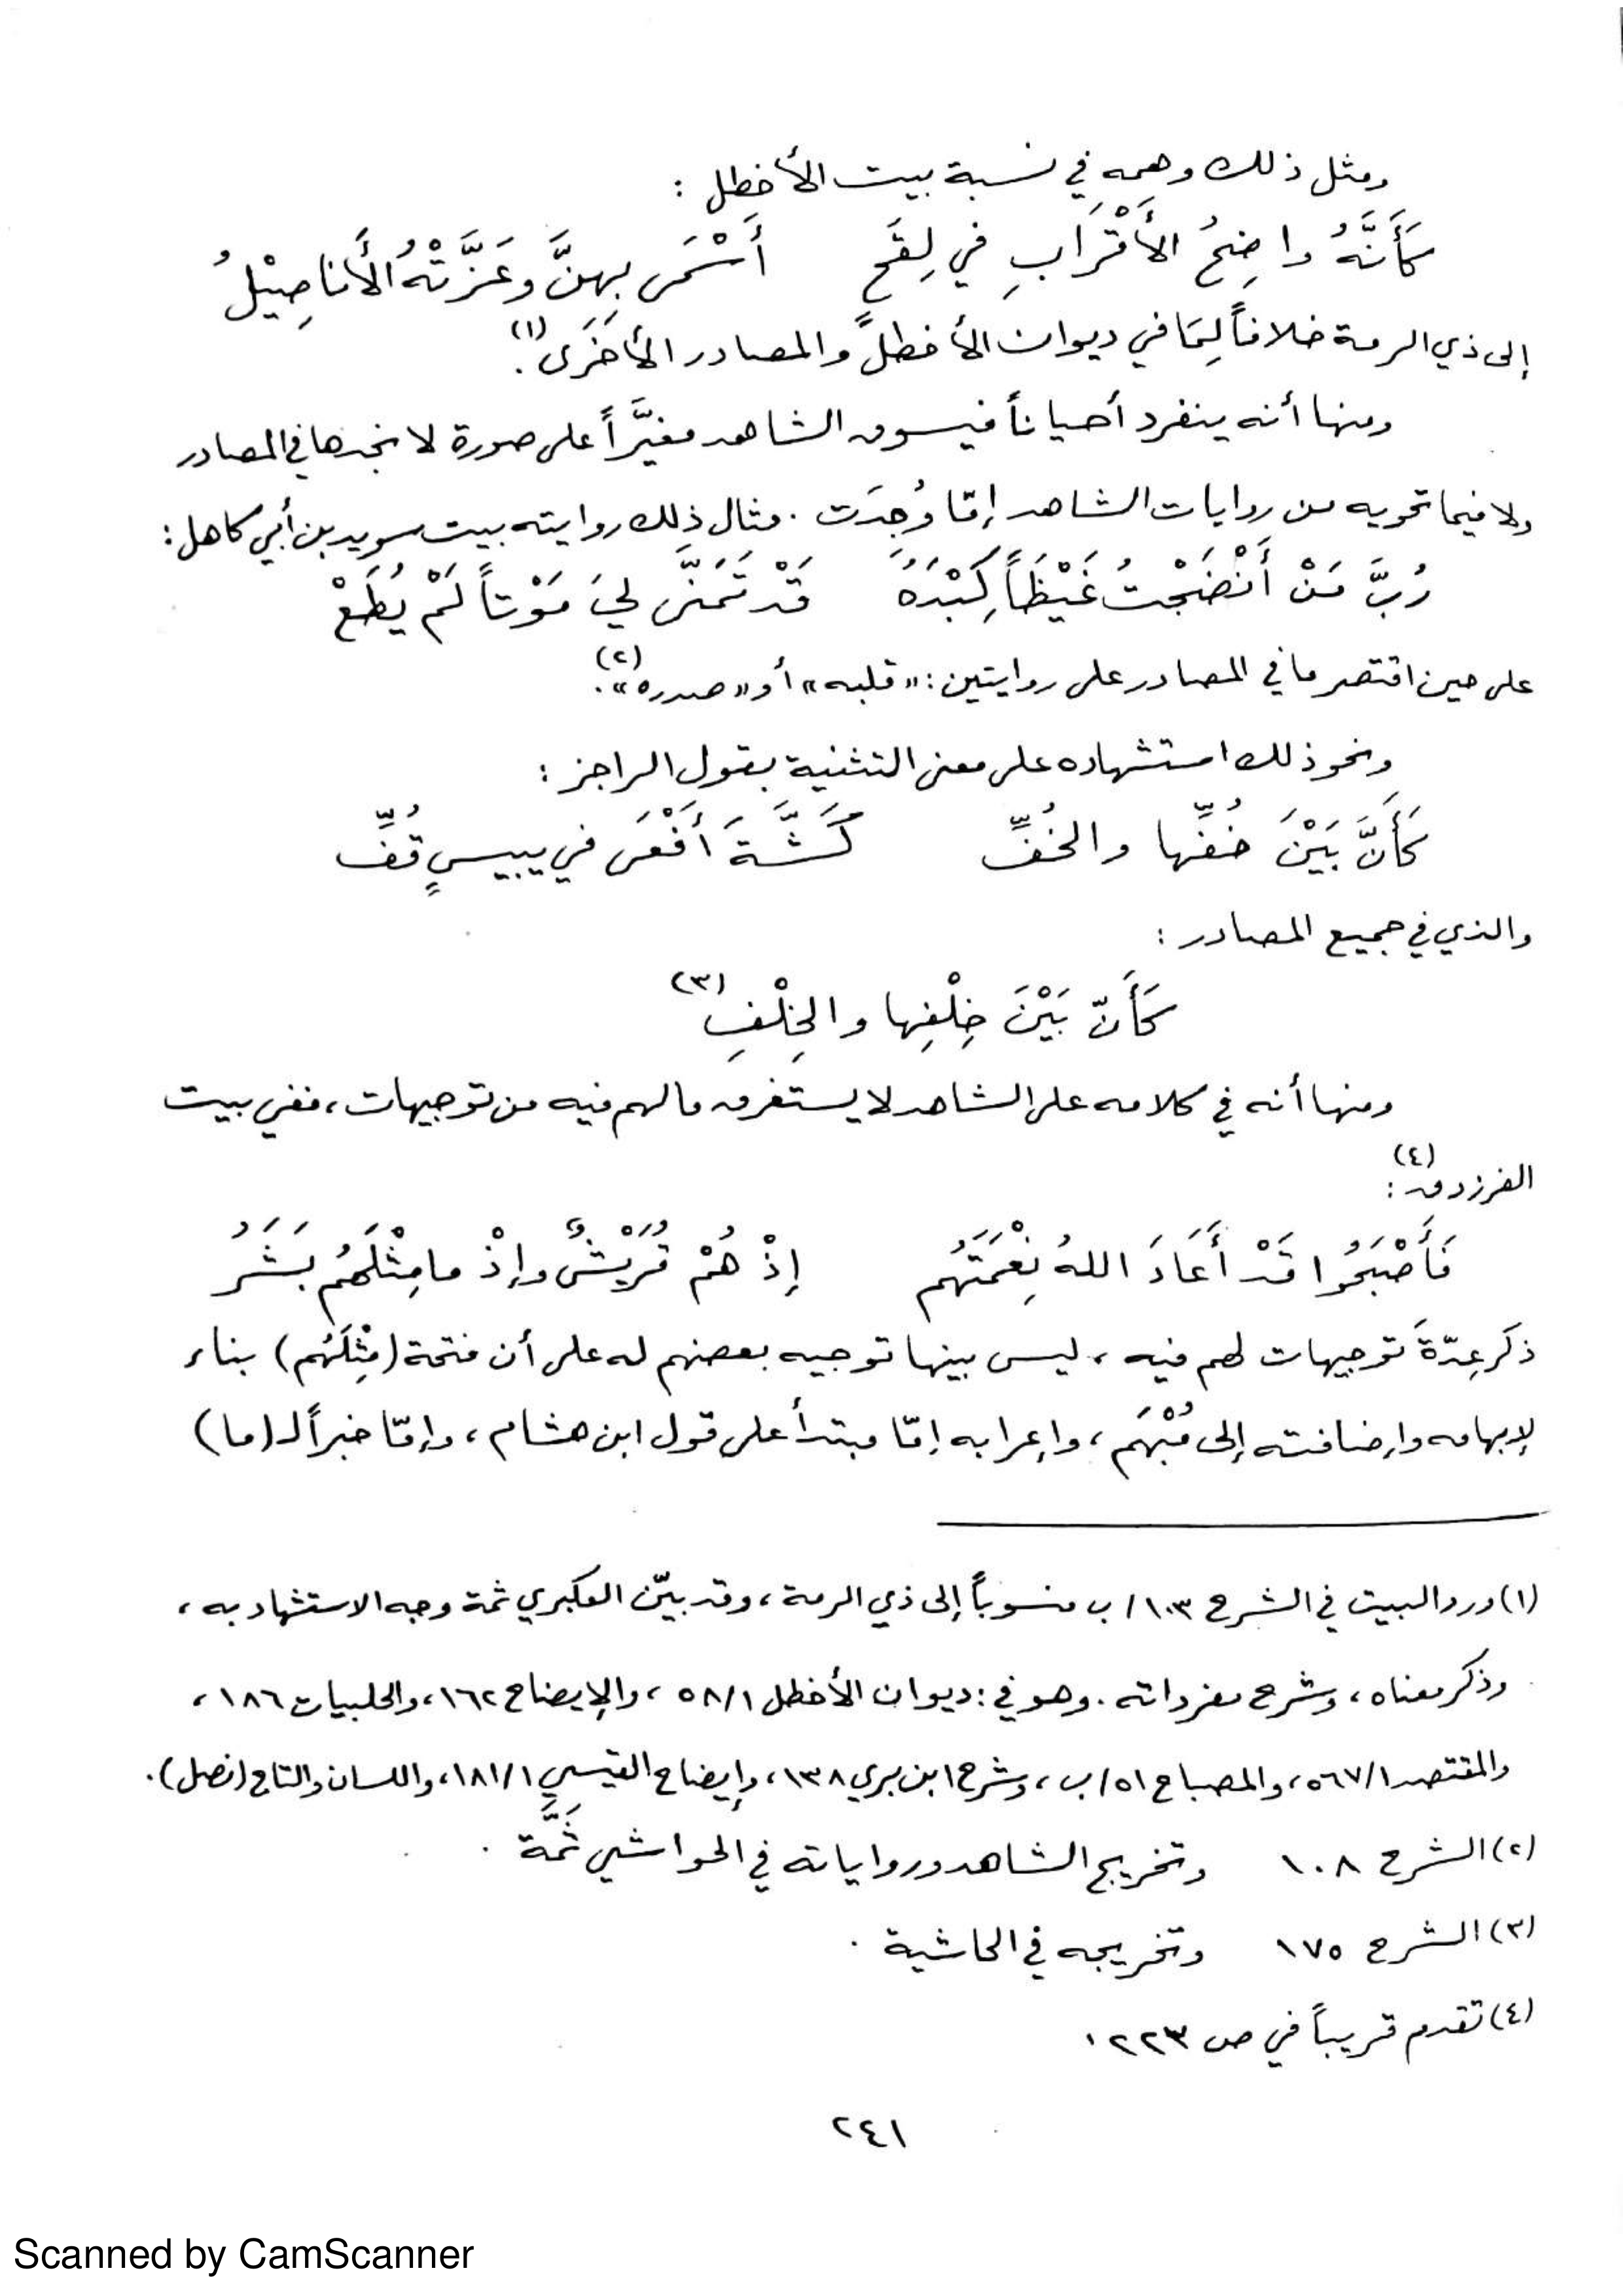 ومثل ذلك وهمه في نسبة بيت الأخطل :
كَأَنَّهُ واضِحُ الأَقْرَابِ في لِقَحٍ أَسْمَى بِهِنَّ وعَزَّتْهُ الأَناصِيْلُ
إلى ذي الرمة خلافاً لِمَا في ديوان الأخطل والمصادر الأخرَى(١).
ومنها أنه ينفرد أحياناً فيسوق الشاهد مغيَّراً على صورة لا نجدها في المصادر
ولا فيما تحويه من روايات الشاهد إمّا وُجِدَت . مثال ذلك روايته بيت سويد بن أبي كاهل :
رُبَّ مَنْ أَنْضَجْتُ غَيْظَاً كِبْدَهُ قَدْ تَمَنَّى لِيَ مَوْتاً لَمْ يُطَعْ
على حين اقتصر ما في المصادر على روايتين : «قلبه» أو «صدره»(٢).
ونحو ذلك استشهاده على معنى التثنية بقول الراجز :
كَأَنَّ بَيْنَ خُفِّها والخُفِّ كَشَّةَ أَفْعَى في يبيسٍ قُفِّ
والذي في جميع المصادر :
كَأَنّ بَيْنَ خِلْفِها والخِلْفِ(٣)
ومنها أنه في كلامه على الشاهد لا يستغرق ما لهم فيه من توجيهات ، ففي بيت
الفرزدق(٤) :
فَأَصْبَحُوا قَدْ أَعَادَ اللهُ نِعْمَتَهُم إِذْ هُمْ قُرَيْشٌ وإِذْ ما مِثْلَهُم بَشَرُ
ذكر عِدّةَ توجيهات لهم فيه ، ليس بينها توجيه بعضهم له على أن فتحة (مِثْلَهُم) بناء
لإبهامه وإضافته إلى مُبْهَم ، وإعرابه إمّا مبتدأ على قول ابن هشام ، وإمّا خبراً لـ (ما)
(١) ورد البيت في الشرح ١٠٣/ب منسوباً إلى ذي الرمة ، وقد بيّن العكبري ثمة وجه الاستشهاد به ،
وذكر معناه ، وشرح مفرداته . وهو في : ديوان الأخطل ٥٨/١ ، والإيضاح ١٦٢ ، والحلبيات ١٨٦ ،
والمقتصد ٥٦٧/١ ، والمصباح ٥١/ب ، وشرح ابن بري ١٣٨ ، وإيضاح القيسي ١٨١/١ ، واللسان والتاج (نصل) .
(٢) الشرح ١٠٨ وتخريج الشاهد ورواياته في الحواشي ثَمَّة .
(٣) الشرح ١٧٥ وتخريجه في الحاشية .
(٤) تقدم قريباً في ص ٢٢٣ .
٢٤١
Scanned by CamScanner